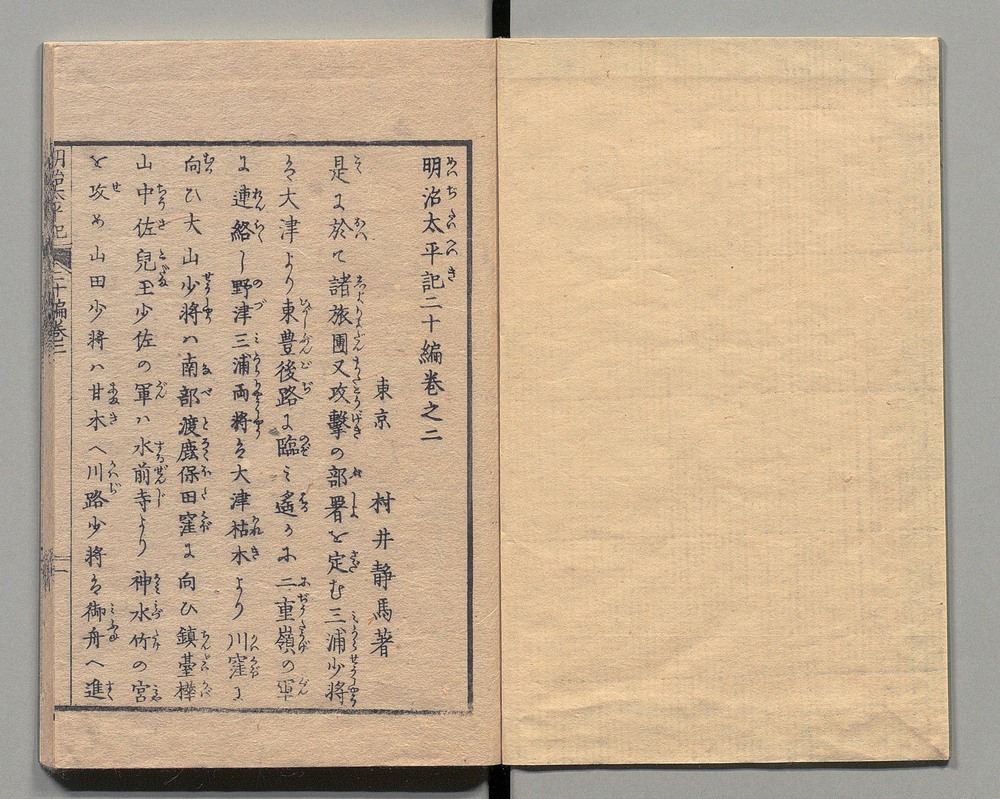 明治太平記二十編巻之二
東京 村井静馬著
是に於て諸旅團又攻撃の部署を定む三浦少将
は大津より東豊後路に臨み遙かに二重嶺の軍
に連絡し野津三浦両将は大津枯木より川窪に
向ひ大山少将ハ南部渡鹿保田窪に向ひ鎮臺樺
山中佐兒玉少佐の軍ハ水前寺より神水竹の宮
を攻め山田少将ハ甘木へ川路少将は御舟へ進
明治太平記 二十編巻二